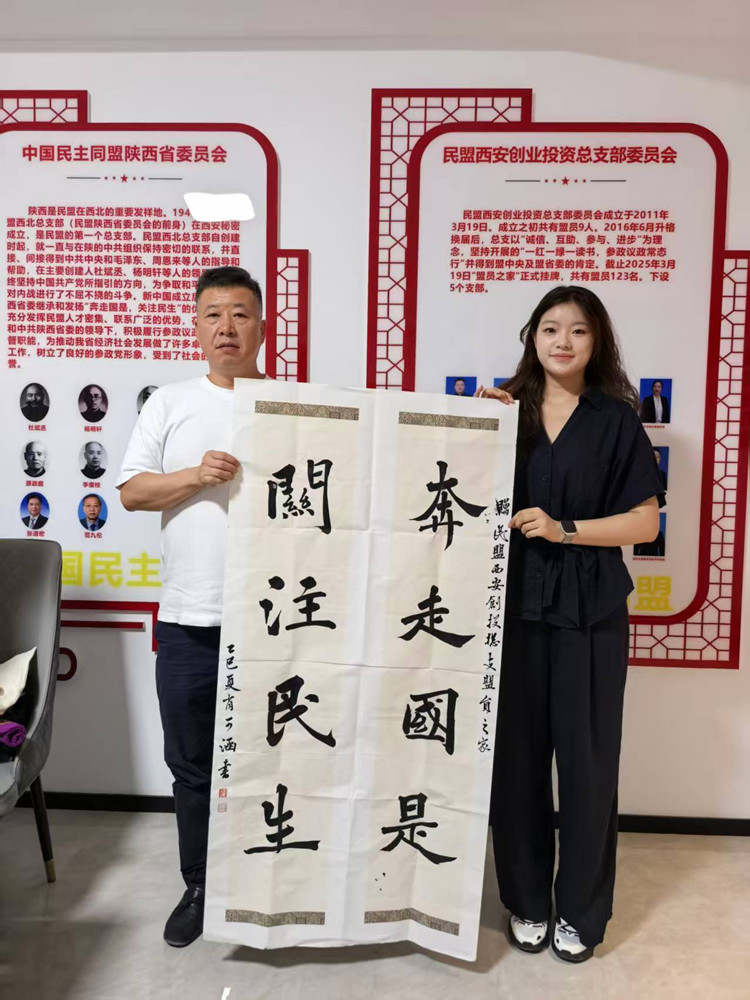 中国民主同盟陕西省委员会
陕西是民盟在西北的重要发样地。194
盟西北总支部（民盟陕西省委员会的前身）在西安秘密
成立，是民盟的第一个总支部。民盟西北总支部自创建
时起，就一直与在陕的中共组织保持密切的联系，并直
接、间接得到中共中央和毛泽东、周恩来等人的指导和
帮助，在主要创建人杜斌丞、杨明轩等人的领
终坚持中国共产党所指引的方向，为争取和平
对内战进行了不屈不挠的斗争。新中国成立
西省委继承和发扬“奔走国是，关注民生”的
充分发挥民盟人才密集、联系广泛的优势，在
和中共陕西省委的领导下，积极履行参政议
督职能，为推动我省经济社会发展做了许多
工作，树立了良好的参政党形象，受到了社会的
誉。
杜斌丞
杨明轩
张道宏
范九伦
国民主
民盟西安创业投资总支部委员会
民盟西安创业投资总支部委员会成立于2011年
3月19日。成立之初共有盟员9人。2016年6月升格
换届后，总支以“诚信、互助、参与、进步”为理
念，坚持开展的“一红一绿一读书，参政议政常态
行”并得到盟中央及盟省委的肯定。截止2025年3月
19日“盟员之家”正式挂牌，共有盟员123名。下设
5个支部。
盟
贈民盟西安創投總支盟員之家
奔走國是
關注民生
乙巳夏肖可涵書